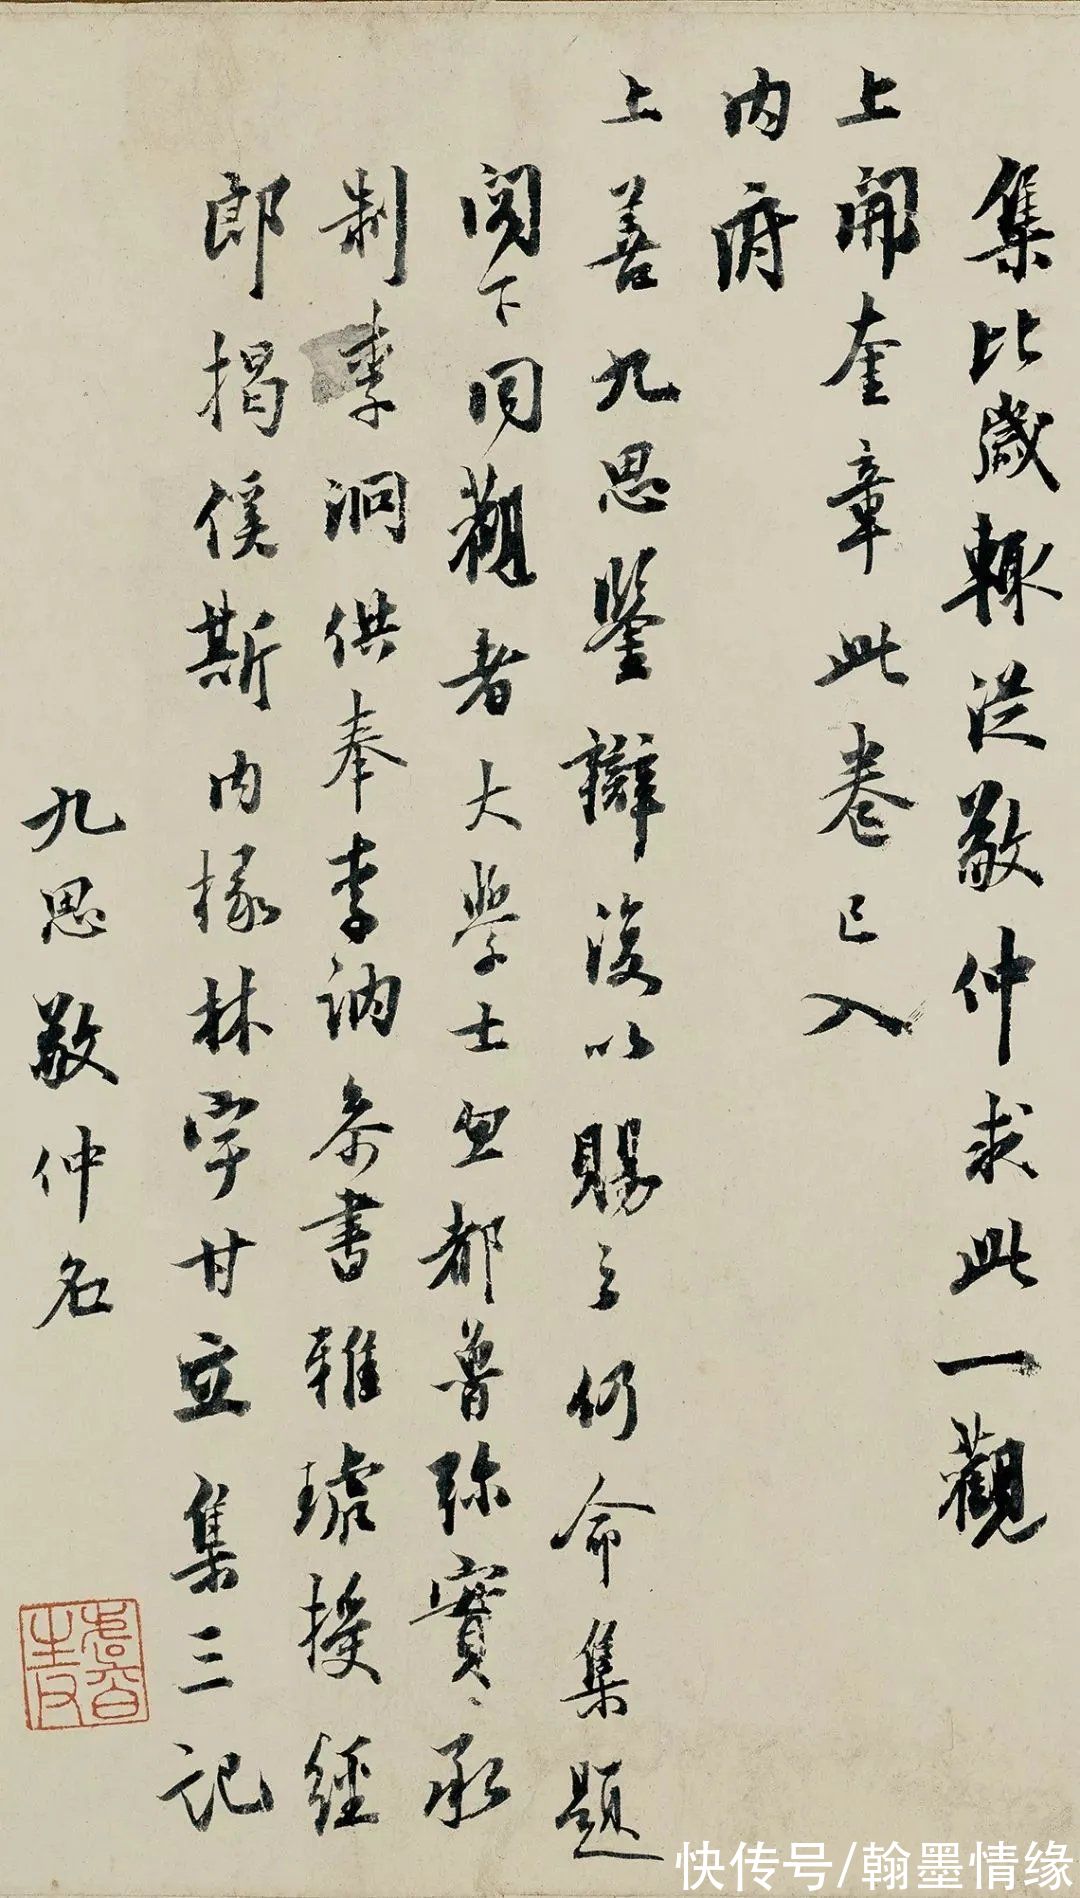 集比歲輒從敬仲求此一觀
上開奎章此卷已入
內府
上善九思鑒辯復以賜之仍命集題
閣下同觀者大學士忽都魯弥實承
制李泂供奉李訥參書雅琥授經
郎揭傒斯內掾林宇甘立集三記
九思敬仲名
快传号/翰墨情缘